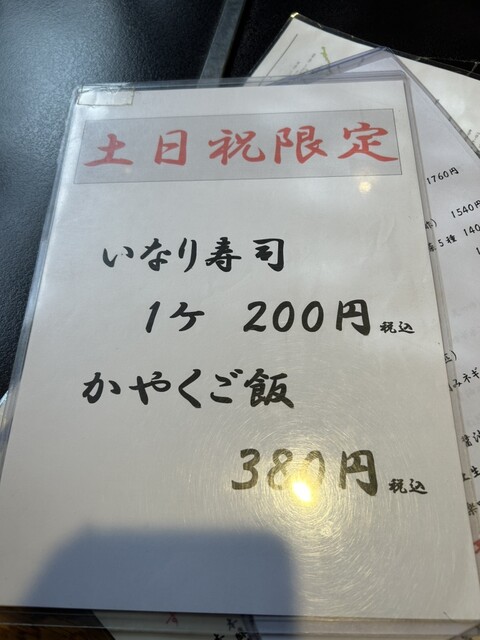 土日祝限定
いなり寿司
1ケ 200円税込
かやくご飯
380円税込
1760円
1540円
5種 140
みネギ
醤油